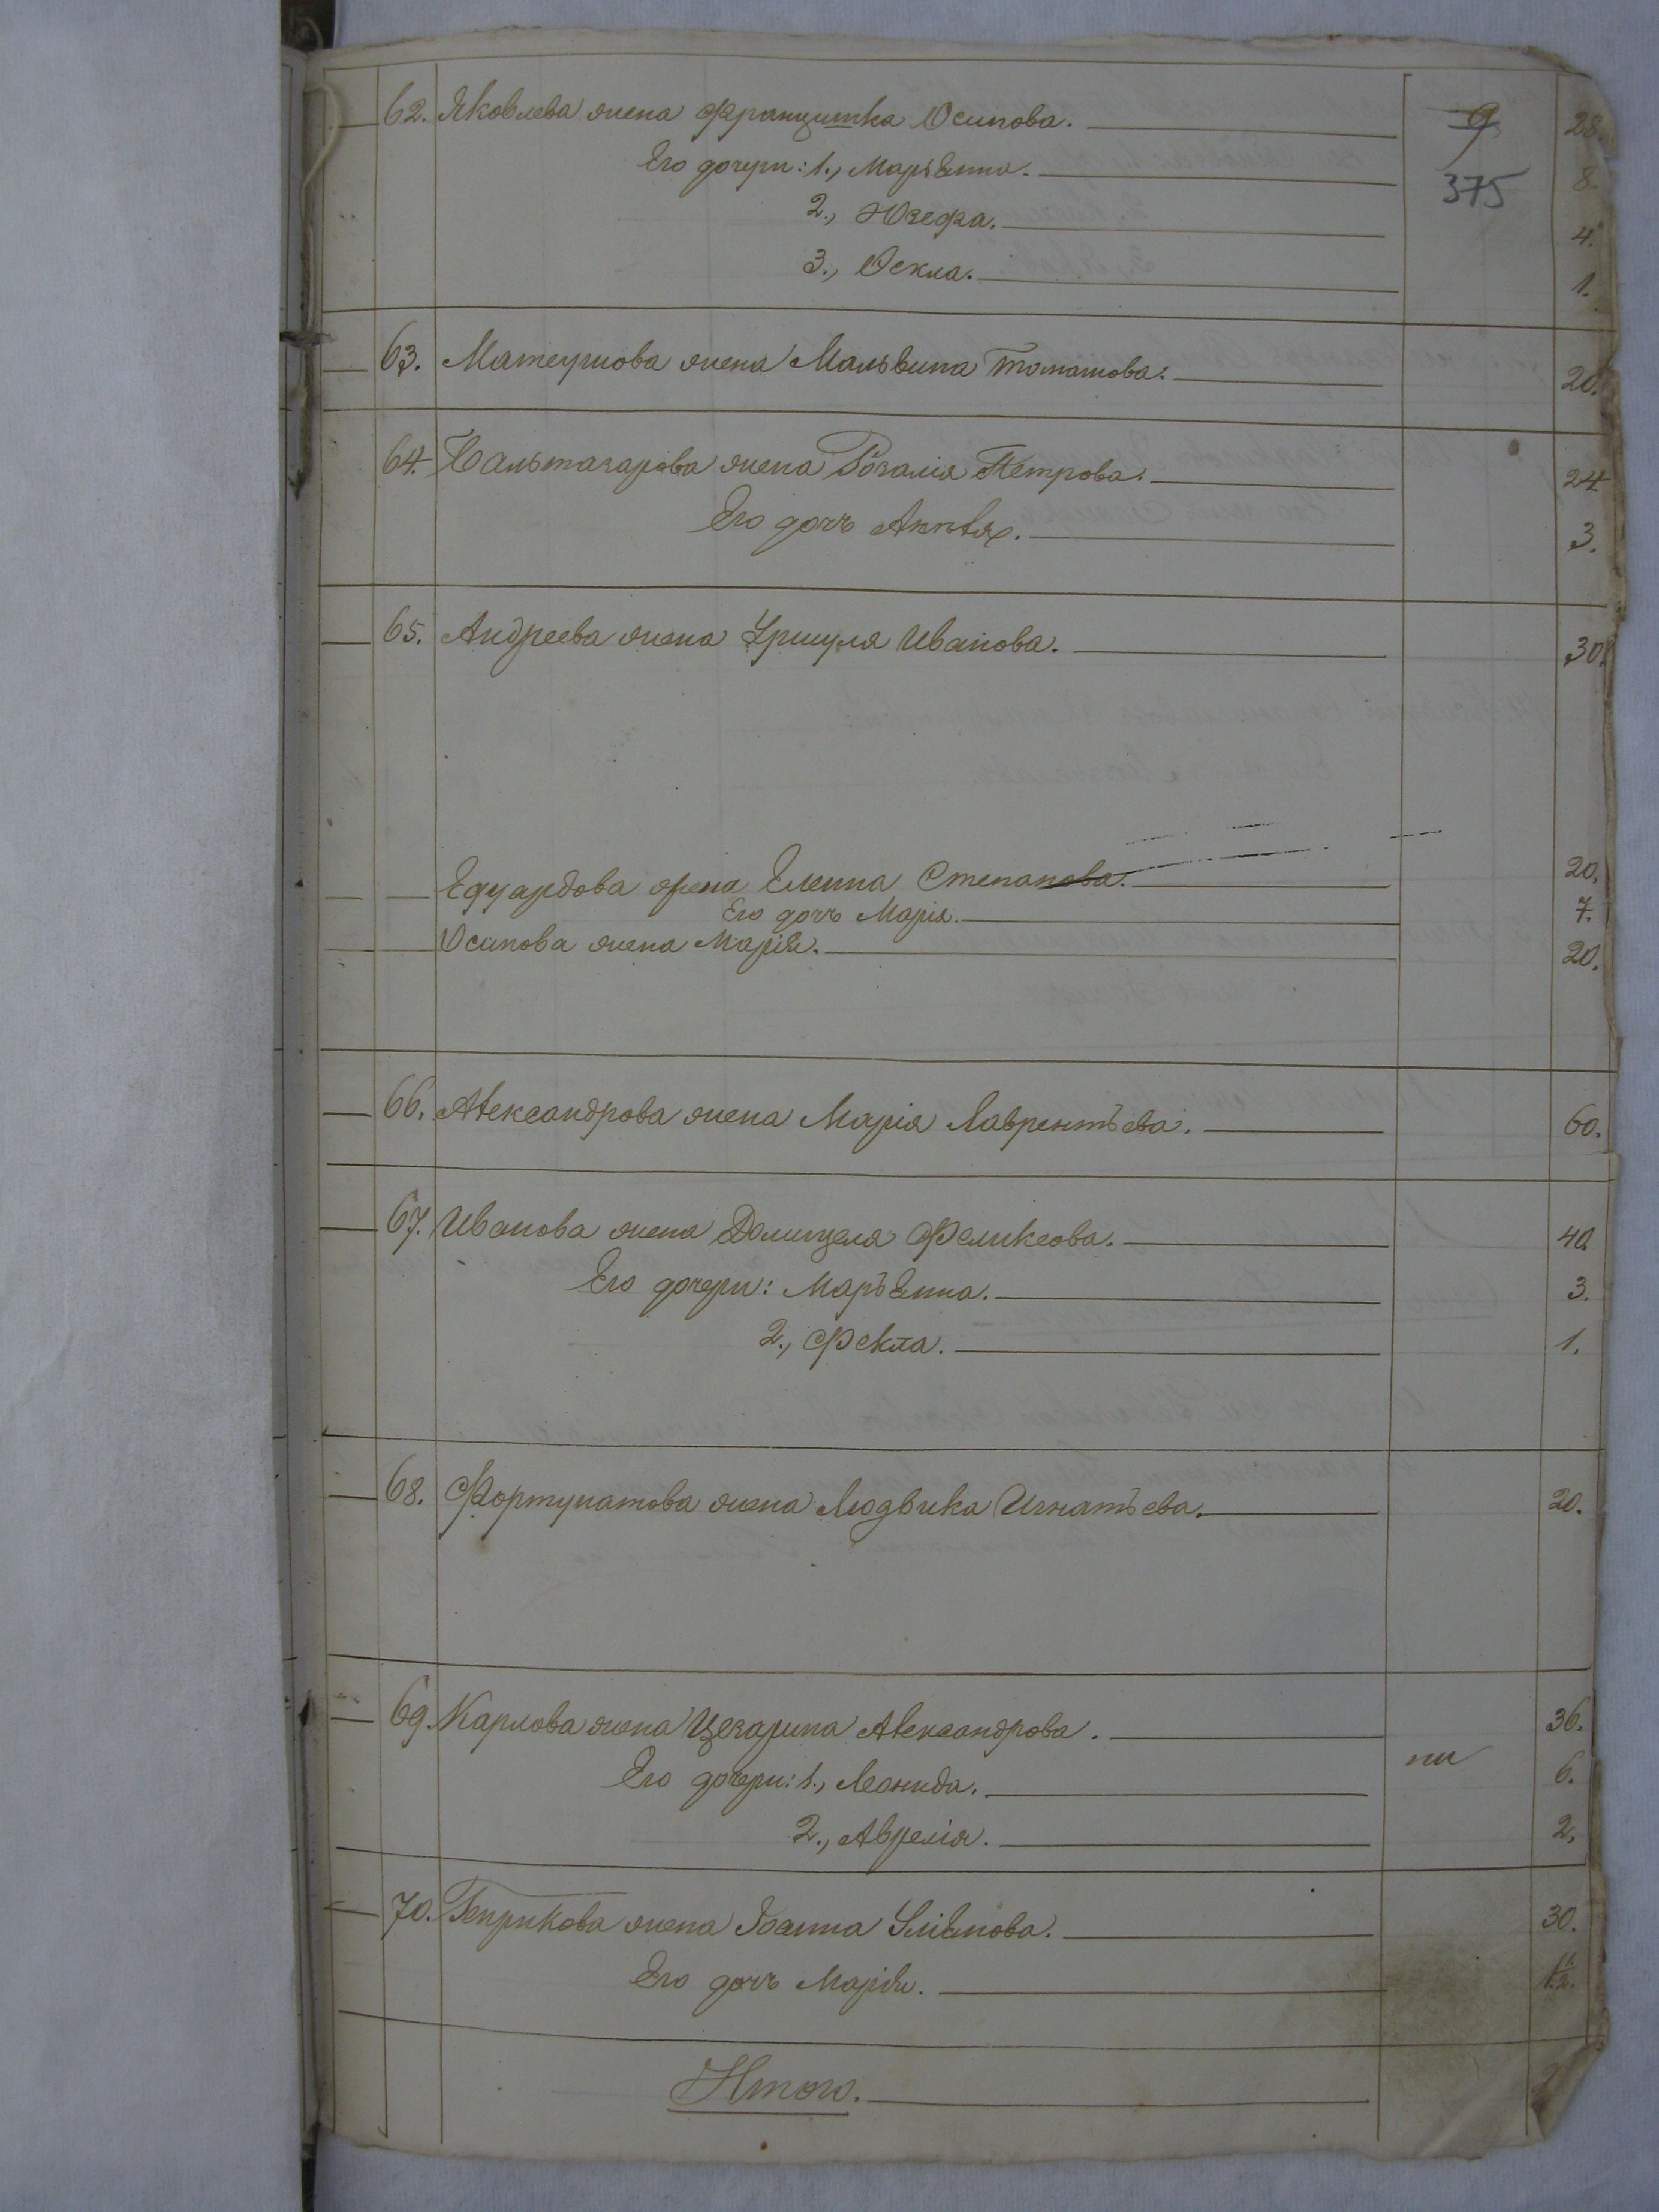 62. Яковлева жена Францишка Осипова. 9 28.
375
Его дочери: 1., Марьянна. 8.
2., Юзефа. 4.
3., Ѳекла. 1.
63. Матеушова жена Мальвина Томашова. 20.
64. Бальтазарова жена Розалія Петрова. 24
Его дочь 3.
65. Андреева жена Уршуля Иванова. 30.
Едуардова жена Елена Степанова. 20.
Его дочь Марія. 7.
Осипова жена Марія. 20.
66. Александрова жена Марія Лаврентьева. 60.
67. Иванова жена Домицеля Феликсова. 40.
Его дочери: Марьянна. 3.
2., Фекла. 1.
68. Фортунатова жена Людвика Игнатьева. 20.
69. Карлова жена Цезарина Александрова. 36.
Его дочери: 1., Леонида. 6.
2., Аврелія. 2.
70. Генрикова жена Іоанна 30.
Его дочь Марія.
Итого.